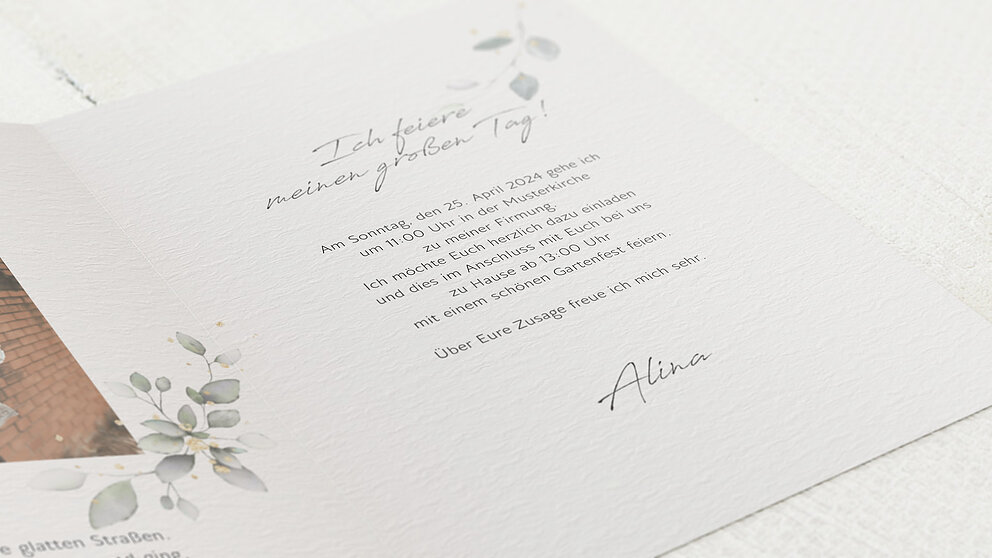 Ich feiere
meinen großen Tag!
Am Sonntag, den 25. April 2024 gehe ich
um 11:00 Uhr in der Musterkirche
zu meiner Firmung.
Ich möchte Euch herzlich dazu einladen
und dies im Anschluss mit Euch bei uns
zu Hause ab 13:00 Uhr
mit einem schönen Gartenfest feiern.
Über Eure Zusage freue ich mich sehr.
Alina
glatten Straßen.
ging,